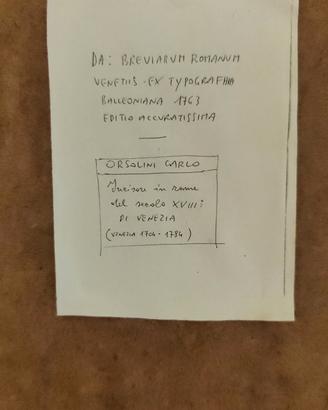 DA: BREVIARVM ROMANVM
VENETIIS - EX TYPOGRAFHIA
BALLEONIANA 1763
EDITIO ACCURATISSIMA
ORSOLINI CARLO
Incisore in rame
del secolo XVIII:
DI VENEZIA
(VENEZIA 1704 - 1784)